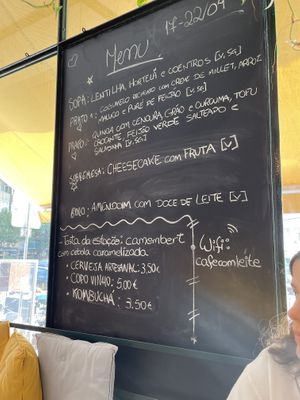 Menu 17-22/04
SOPA: LENTILHA, HORTELÃ e COENTROS [v, sg]
PRATO 1: COGUMELO RECHEADO com CREME DE MILLET, ARROZ
MALUCO e PURÉ DE FEIJÃO [v, sg]
PRATO 2: QUINOA COM CENOURA, GRÃO e CURCUMA, TOFU
CROCANTE, FEIJÃO VERDE SALTEADO e
[v, sg]
SOBREMESA: CHEESECAKE com FRUTA [v]
BOLO: AMENDOIM COM DOCE DE LEITE [v]
- Tosta da estação: camembert
com cebola caramelizada
• CERVEJA ARTESANAL: 3,50€
• COPO VINHO: 5,00€
• KOMBUCHA: 3.50€
Wifi:
cafecomleite